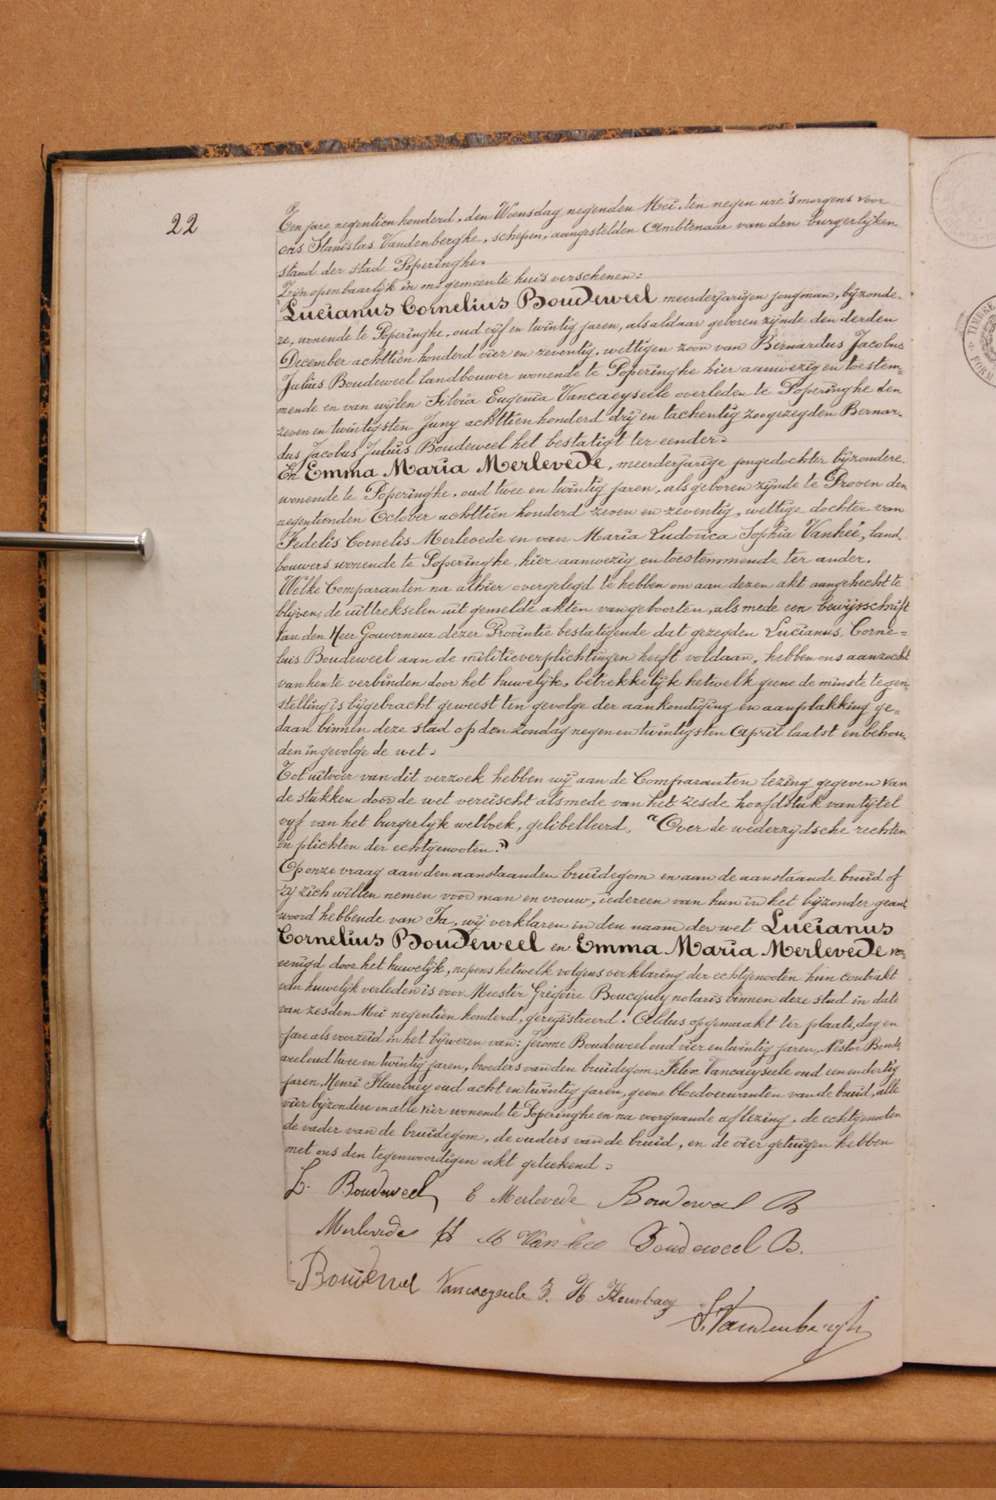 22
Ten jare negentien honderd, den Woensdag negenden Mei, ten negen ure 's morgens voor
ons Stanislas Vandenberghe, schepen, aangestelden Ambtenaar van den burgerlijken
stand der stad Poperinghe.
Zijn openbaarlijk in ons gemeente huis verschenen:
Lucianus Cornelius Boudeweel meerderjarigen jongman, bijzonde-
re, wonende te Poperinghe, oud vijf en twintig jaren, als aldaar geboren zijnde den derden
December achttien honderd vier en zeventig, wettigen zoon van Bernardus Jacobus
Julius Boudeweel landbouwer wonende te Poperinghe hier aanwezig en toestem-
mende en van wijlen Silvia Eugenia Vancaeyseele overleden te Poperinghe den
zeven en twintigsten Juny achttien honderd drij en tachentig zoo gezegden Bernar-
dus Jacobus Julius Boudeweel het bestatigt ter eender.
En Emma Maria Merlevede, meerderjarige jongedochter bijzondere
wonende te Poperinghe, oud twee en twintig jaren, als geboren zijnde te Proven den
negentienden October achttien honderd zeven en zeventig, wettige dochter van
Fedelis Cornelis Merlevede en van Maria Ludovica Sophia Vanheé, land
bouwers wonende te Poperinghe, hier aanwezig en toestemmende ter ander.
Welke Comparanten na alhier overgelegd te hebben om aan dezen akt aangehecht te
blijven, de uittrekselen uit gemelde akten van geboorten, als mede een bewijsschrift
van den Heer Gouverneur dezer Provintie bestatigende dat gezegden Lucianus Corne-
lius Boudeweel aan de militieverplichtingen heeft voldaan, hebben ons aanzocht
van hen te verbinden door het huwelijk, betrekkelijk hetwelk geene de minste tegen-
stelling is bijgebracht geweest ten gevolge der aankondiging en aanplakking ge-
daan binnen deze stad op den zondag negen en twintigsten April laatst en behou-
den ingevolge de wet.
Tot uitvoer van dit verzoek hebben wij aan de Comparanten lezing gegeven van
de stukken door de wet vereischt alsmede van het zesde hoofdstuk van tytel
vyf van het burgerlyk wetboek, gelibelleerd, "Over de wederzydsche rechten
en plichten der echtgenooten."
Op onze vraag aan den aanstaanden bruidegom en aan de aanstaande bruid of
zij zich willen nemen voor man en vrouw, iedereen van hun in het bijzonder geant
woord hebbende van Ja, wij verklaren in den naam der wet Lucianus
Cornelius Boudeweel en Emma Maria Merlevede ver-
eenigd door het huwelijk, nopens hetwelk volgens verklaring der echtgenooten hun contrakt
van huwelijk verleden is voor Meester Grégoire Boucquey notaris binnen deze stad in date
van zesden Mei negentien honderd, geregistreerd. Aldus opgemaakt ter plaats, dag en
jare als voorzeid in het bijwezen van: Jerome Boudeweel oud vier en twintig jaren, Nestor Boude
weel oud twee en twintig jaren, broeders van den bruidegom, Felix Vancaeyseele oud een en dertig
jaren, Henri Fleurbaey oud acht en twintig jaren, geene bloedverwanten van de bruid, alle
vier bijzondere en alle vier wonende te Poperinghe en na voorgaande aflezing, de echtgenoten
de vader van de bruidegom, de ouders van de bruid, en de vier getuigen hebben
met ons den tegenwoordigen akt geteekend.
L. Boudeweel E Merlevede Boudeweel B
Merlevede M Vanhee Boudeweel B.
Boudeweel Vancaeyseele F. H Fleurbaey
S. Vandenberghe
TIMBRE
FORM